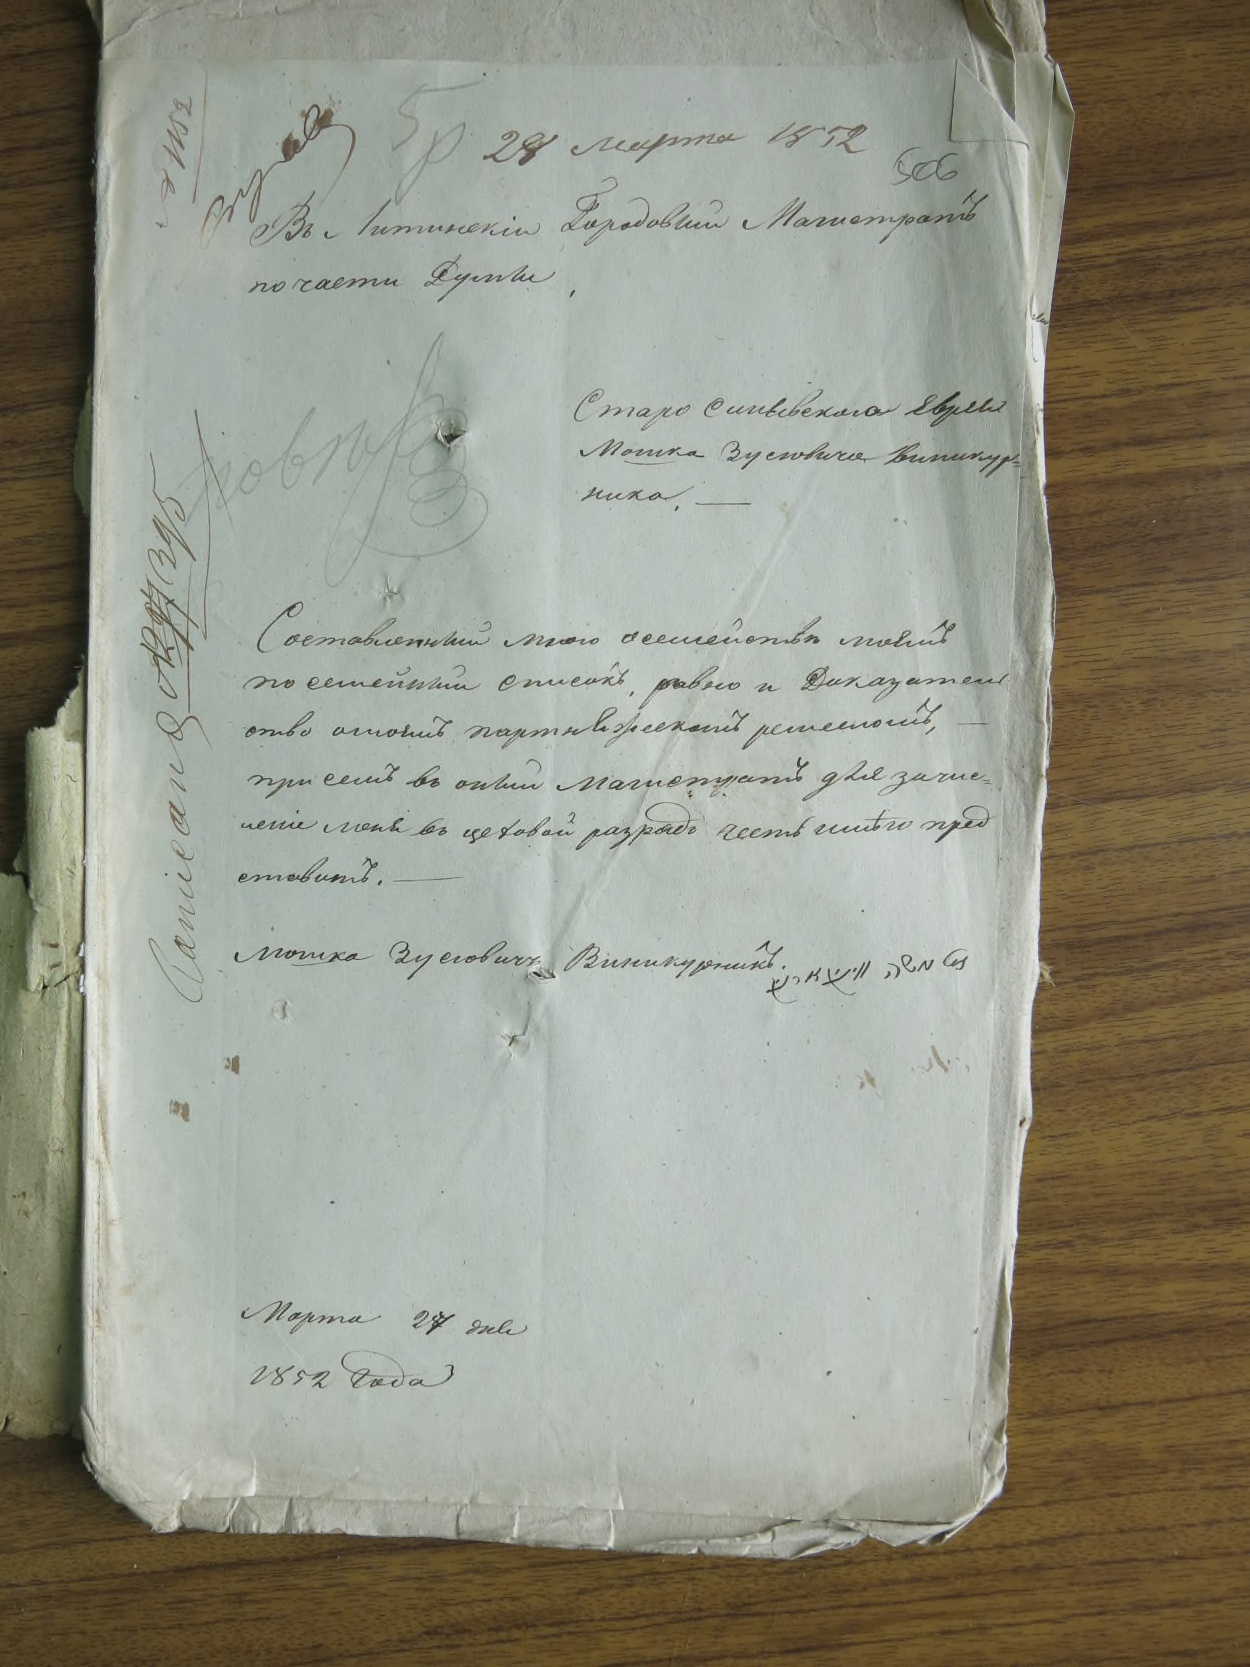 28 Марта 1852
506
Въ Литинскій Городовый Магистратъ
по части Думы
Старо Синявского Еврея
Мошка Зусювича Виникур=
ника. —
Составленный мною о семействѣ моемъ
посемейный списокъ, равно и Доказатель
ство о моемъ портняжескомъ ремеслѣ, —
при семъ въ оный Магистратъ для зачис=
ленія меня въ цеховой разрядъ честь имѣю пред
ставить. —
Мошка Зусювичъ Виникурникъ.
נאם משה
Марта 27 дня
1852 Года